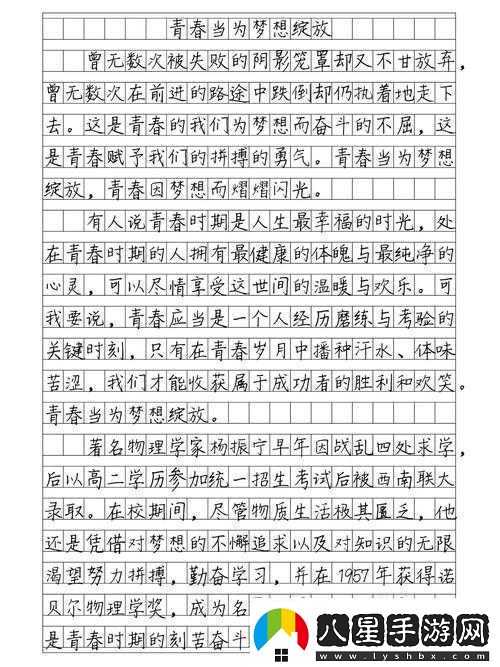 青春当为梦想绽放
曾无数次被失败的阴影笼罩却又不甘放弃，
曾无数次在前进的路途中跌倒却仍执着地走下
去。这是青春的我们为梦想而奋斗的不屈，这
是青春赋予我们的拼搏的勇气。青春当为梦想
绽放，青春因梦想而熠熠闪光。
有人说青春时期是人生最幸福的时光，处
在青春时期的人拥有最健康的体魄与最纯净的
心灵，可以尽情享受这世间的温暖与欢乐。可
我要说，青春应当是一个人经历磨练与考验的
关键时刻，只有在青春岁月中播种汗水、体味
苦涩，我们才能收获属于成功者的胜利和欢笑。
青春当为梦想绽放。
著名物理学家杨振宁早年因战乱四处求学，
后以高二学历参加统一招生考试后被西南联大
录取。在校期间，尽管物质生活极其匮乏，他
还是凭借对梦想的不懈追求以及对知识的无限
渴望努力拼搏，勤奋学习，并在1957年获得诺
贝尔物理学奖，成为名
是青春时期的刻苦奋斗
八星手游网
www.lyshbx.com